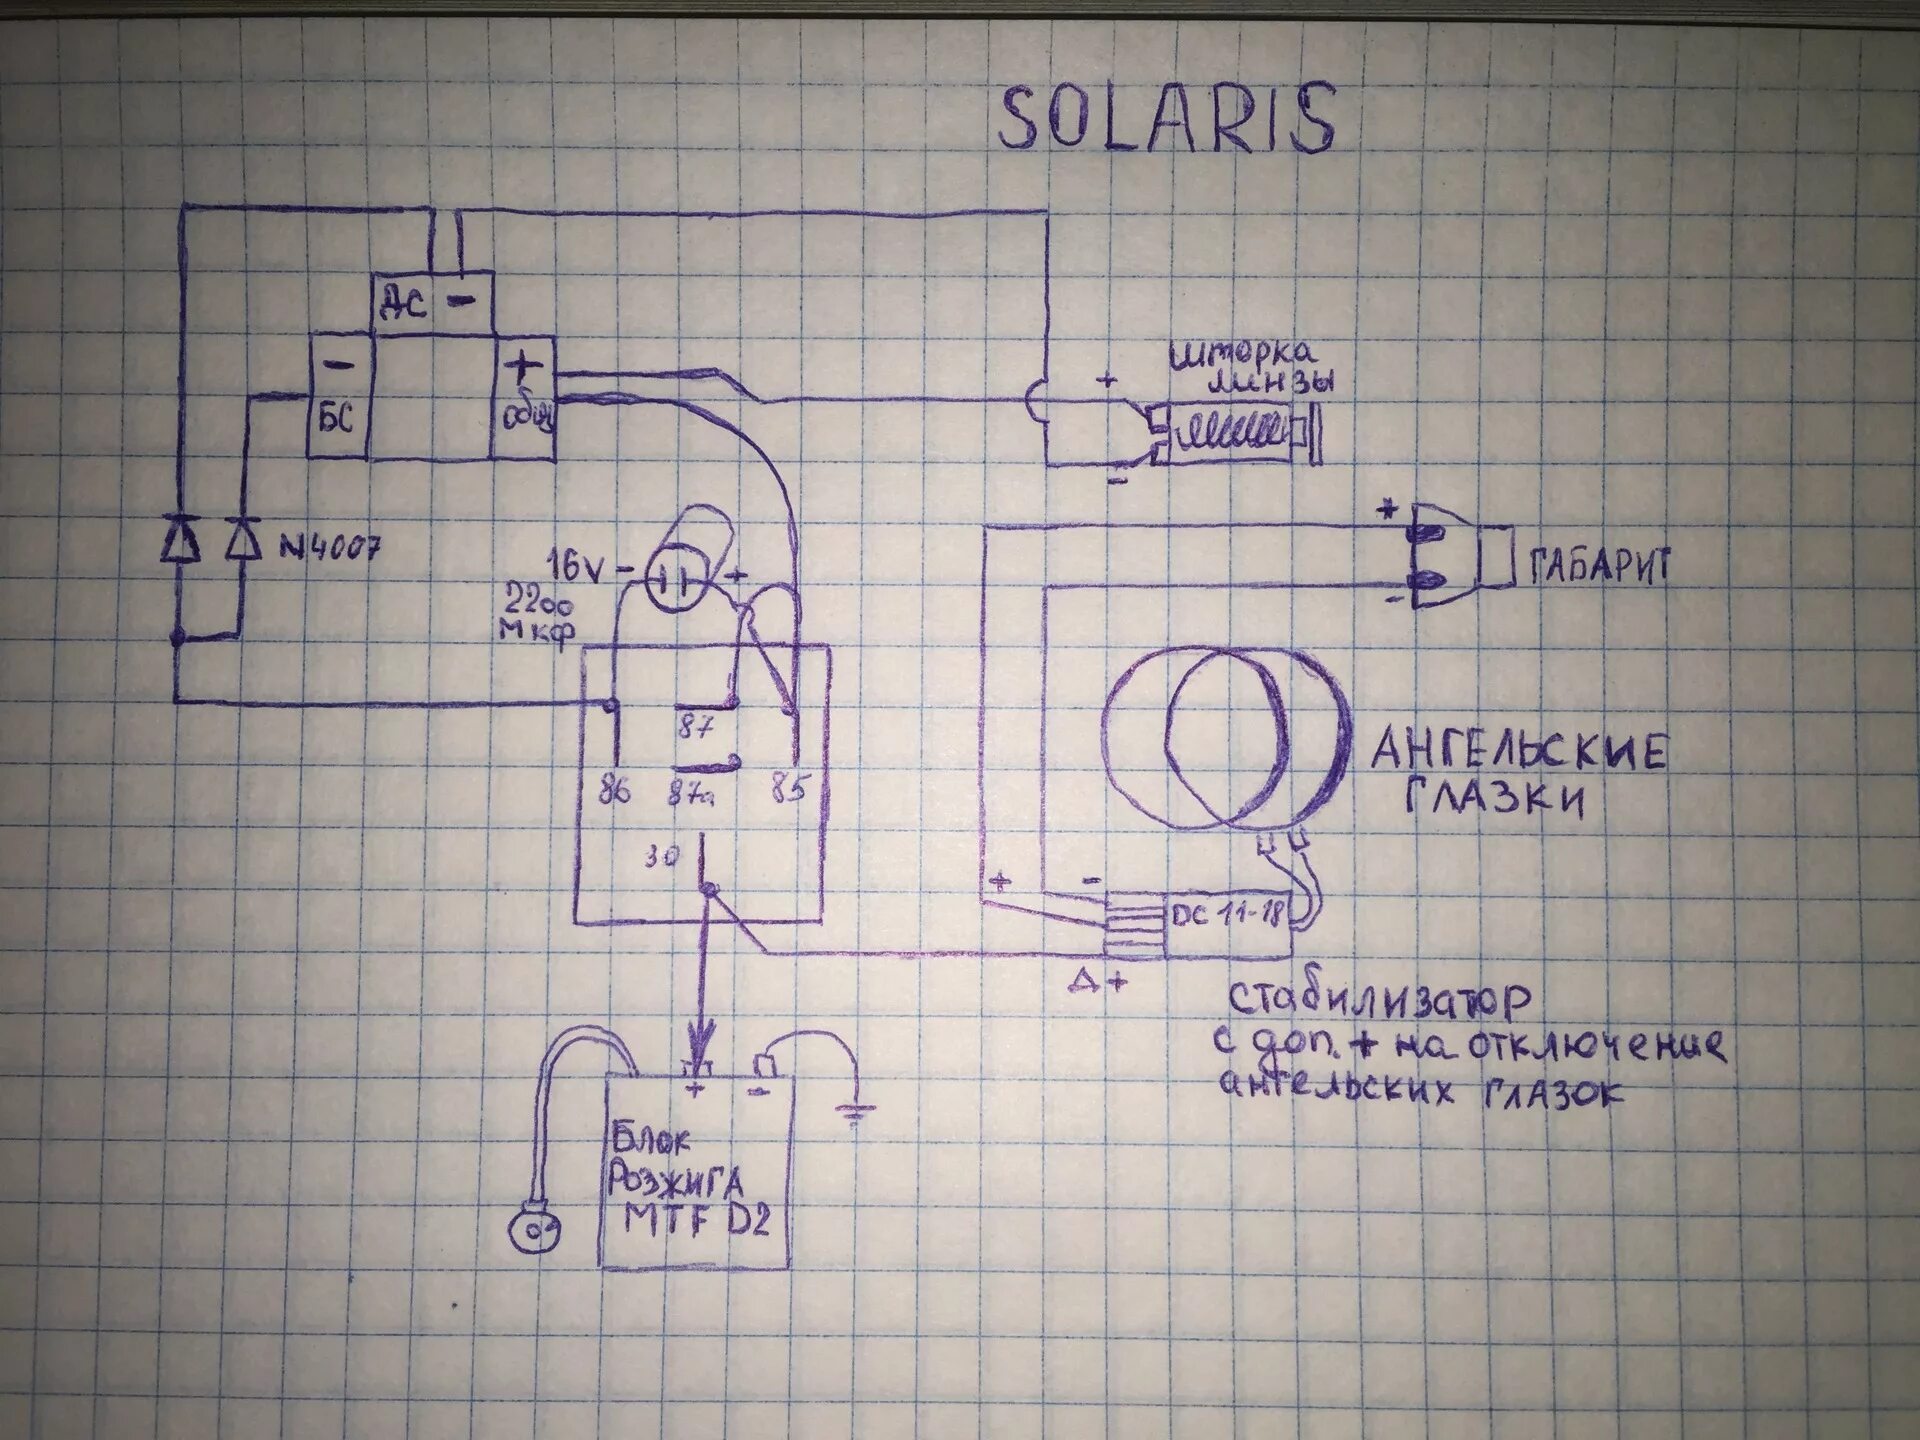 SOLARIS
ДС -
-
БС
+
общ
+
шторка
линзы
-
N4007
16V - +
2200
мкф
+
ГАБАРИТ
-
87
86 87а 85
30
АНГЕЛЬСКИЕ
ГЛАЗКИ
+ -
DC 11-18
Д+
стабилизатор
с доп. + на отключение
ангельских глазок
+ -
Блок
Розжига
MTF D2